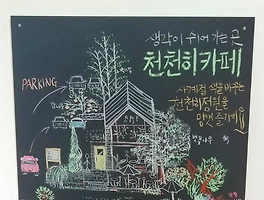 생각이 쉬어 가는 곳
천천히카페
PARKING
사계절 색을 바꾸는
천천히정원을
맘껏 즐기세요